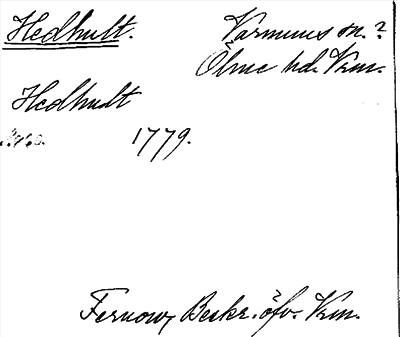 Hedhult. Varnums sn.?
Ölme hd. Vrm.
Hedhult
1779.
Fernow, Beskr. öfv. Vrm.